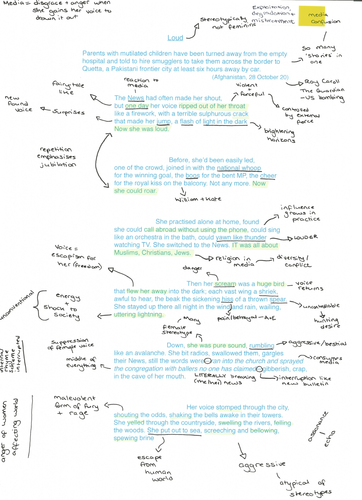 Media = disgrace + anger when
she gains her voice to
drown it out
Exploitation
degradation +
mistreatment
media
confusion
Loud
Stereotypically
not feminine
Parents with mutilated children have been turned away from the empty
hospital and told to hire smugglers to take them across the border to
Quetta, a Pakistani frontier city at least six hours away by car.
(Afghanistan, 28 October 20)
So many
'stories' in
one
reaction to
media
Violent
forceful
Ray Caroll
The Guardian
- US bombing
fairytale
like
new
found
voice
surprises
The News had often made her shout,
but one day her voice ripped out of her throat
like a firework, with a terrible sulphurous crack
that made her jump, a flash of light in the dark.
Now she was loud.
controlled
by external
force
brightening
horizons
repetition
emphasises
jubilation
Before, she'd been easily led,
one of the crowd, joined in with the national whoop
for the winning goal, the boos for the bent MP, the cheer
for the royal kiss on the balcony. Not any more. Now
she could roar.
William + Kate
influence
grows in
practice
She practised alone at home, found
she could call abroad without using the phone, could sing
like an orchestra in the bath, could yawn like thunder
watching TV. She switched to the News. IT was all about
Muslims, Christians, Jews.
LOUDER
religion in
media
diversity/
conflict
Voice =
escapism for
her (freedom)
danger
Then her scream was a huge bird
that flew her away into the dark; each vast wing a shriek,
awful to hear, the beak the sickening hiss of a thrown spear.
She stayed up there all night in the wind and rain, wailing,
uttering lightning.
voice
returns
unstoppable
hunting
desire
pain/betrayal
unconventional
energy
shock to
society
female
stereotype
Down, she was pure sound, rumbling
like an avalanche. She bit radios, swallowed them, gargles
their News, still the words were ran into the church and sprayed
the congregation with bullets no one has claimed gibberish, crap,
in the cave of her mouth.
aggressive/bestial
consumes
media
suppression
of female voice
middle of
everything
LITERALLY breaking
(the/her) news
interruption like
news bulletin
malevolent
form of fury
+ rage
Her voice stomped through the city,
shouting the odds, shaking the bells awake in their towers.
She yelled through the countryside, swelling the rivers, felling
the woods. She put out to sea, screeching and bellowing,
spewing brine
anger of women
affecting world
assonance
echo
escape
from
human world
aggressive
atypical of
stereotypes